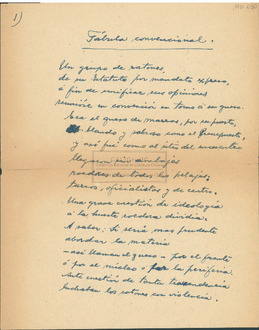 1)
Fábula convencional.
Un grupo de ratones,
de su Estatuto por mandato expreso,
á fin de unificar sus opiniones
reunióse en convención en torno á un queso.
Era el queso de marras, por supuesto,
blando y sabroso como el Presupuesto,
y así fué como al sitio del encuentro
llegaron
roedores de todos los pelajes,
turros, oficialistas y de centro.
Una grave cuestión de ideología
á la hueste roedora dividía.
A saber: Si sería mas prudente
abordar la materia
—así llaman el queso— por el frente
ó por el núcleo - por la periferia.
Ante cuestión de tanta trascendencia
luchaban los ratones con violencia.